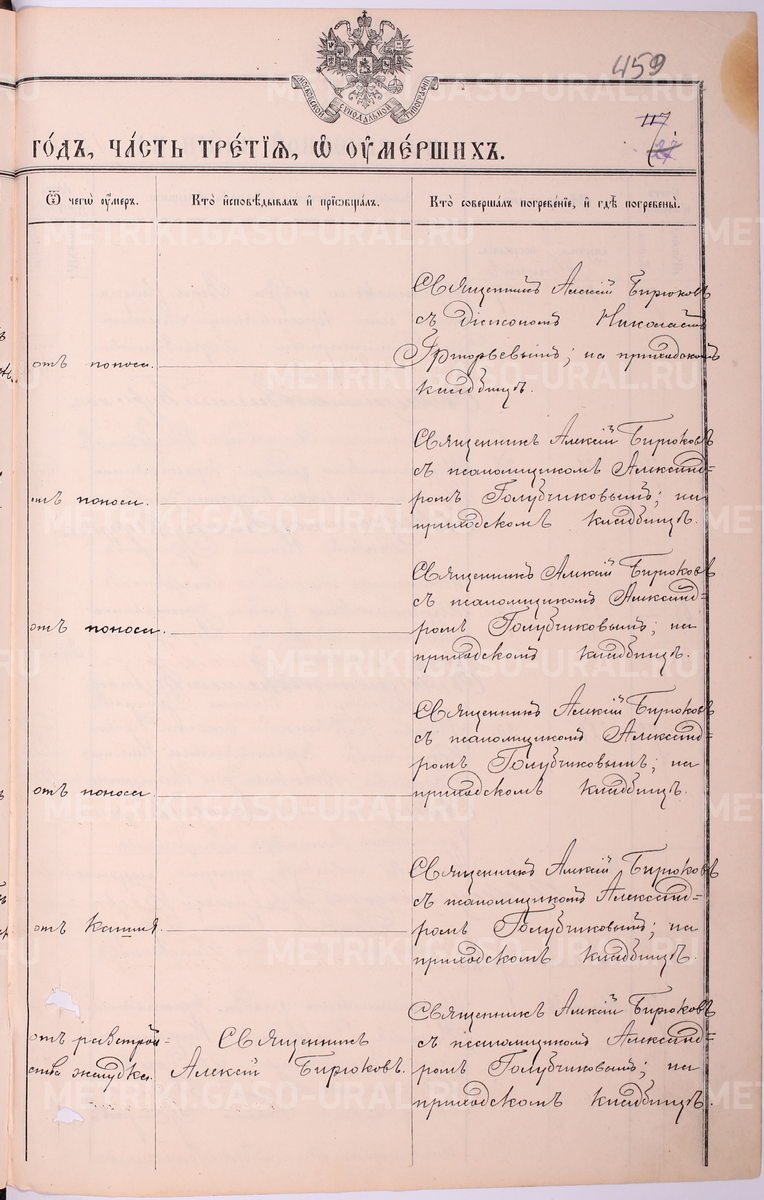 459
МОСКОВСКОЙ СѴНОДАЛЬНОЙ ТИПОГРАФІИ
117
27
ГО́ДЪ, ЧА́СТЬ ТРЕ́ТІѦ, Ѡ҆ ОУ҆МЕ́РШИХЪ.
Ѿ чегѡ̀ оу҆́меръ.
Кто̀ и҆сповѣ́дывалъ и҆ прїѡбща́лъ.
Кто̀ соверша́лъ погребе́нїе, и҆ гдѣ̀ погребены̀.
отъ поноса.
Священникъ Алексій Бирюковъ
съ діакономъ Николаемъ
Григорьевымъ; на приходскомъ
кладбищѣ.
отъ поноса.
Священникъ Алексій Бирюковъ
съ псаломщикомъ Александ-
ромъ Голубчиковымъ; на
приходскомъ кладбищѣ.
отъ поноса.
Священникъ Алексій Бирюковъ
съ псаломщикомъ Александ-
ромъ Голубчиковымъ; на
приходскомъ кладбищѣ.
отъ поноса
Священникъ Алексій Бирюковъ
съ псаломщикомъ Александ-
ромъ Голубчиковымъ; на
приходскомъ кладбищѣ.
отъ кашля.
Священникъ Алексій Бирюковъ
съ псаломщикомъ Александ-
ромъ Голубчиковымъ; на
приходскомъ кладбищѣ.
отъ разстрой-
ства желудка.
Священникъ
Алексій Бирюковъ.
Священникъ Алексій Бирюковъ
съ псаломщикомъ Александ-
ромъ Голубчиковымъ; на
приходскомъ кладбищѣ.
METRIKI.GASO-URAL.RU